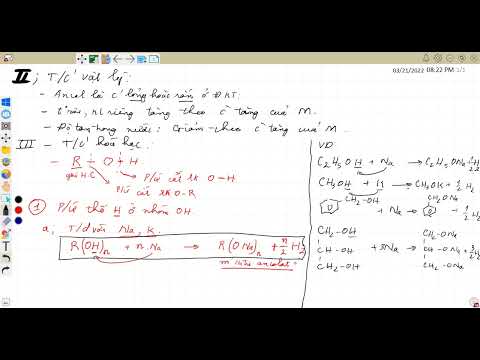 03/21/2022 08:22 PM 1/1
II, T/c' vật lý:
- Ancol là c' lỏng hoặc rắn ở ĐKT.
- t° sôi, kl riêng tăng theo c tăng của M.
- Độ tan trong nước: Giảm theo c tăng của M.
III - T/c' hoá học.
- R - O - H
gốc H.C
P/ứ cắt lk O-H
P/ứ cắt lk O-R
① P/ứ thế H ở nhóm OH
a, T/d với Na, K.
R(OH)n + n Na → R(ONa)n + n/2 H2
VD:
C2H5OH + Na → C2H5ONa + 1/2
CH3OH + K → CH3OK + 1/2 H
CH2-OH + Na → CH2-ONa
CH2-OH CH2-ONa
CH-OH + 3Na → CH-ONa + 3/2 H
CH2-OH CH2-ONa